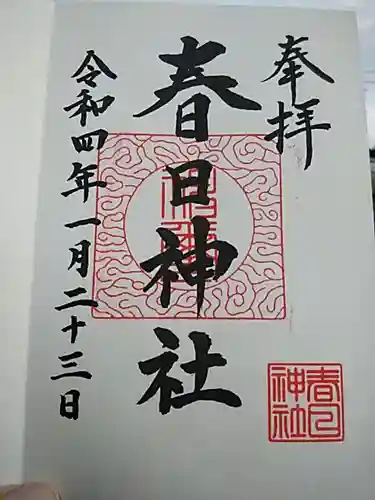 奉拝
春日神社
令和四年一月二十三日
春日神社